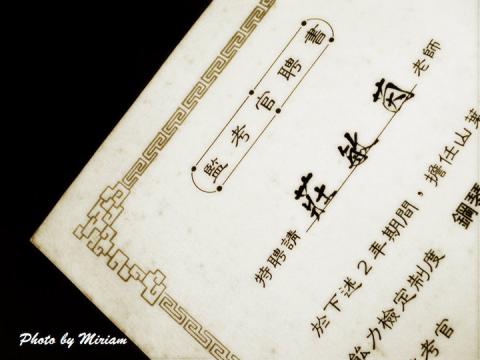 監考官聘書
特聘請 莊敏茵 老師
於下述2年期間，擔任山葉
能力檢定制度 鋼琴
考官
Photo by Miriam